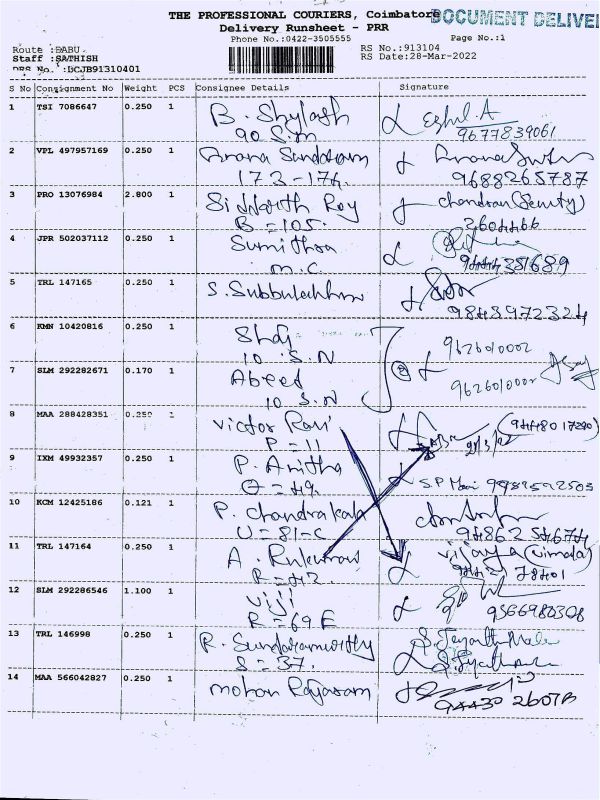 THE PROFESSIONAL COURIERS, Coimbatore
DOCUMENT DELIVE
Delivery Runsheet - PRR
Phone No.:0422-3505555
Page No.:1
Route :BABU
RS No.:913104
Staff :SATHISH
RS Date:28-Mar-2022
DRS No. :DCJB91310401
S No Consignment No Weight PCS Consignee Details Signature
1 TSI 7086647 0.250 1 B. Shylash
90 S.M 9677839061
2 VPL 497957169 0.250 1 Sundaram
173-174. 9688265787
3 PRO 13076984 2.800 1 Siddharth Roy chandran (Security)
B = 105. 2604466
4 JPR 502037112 0.250 1 Sumithra
m.c 9444351689
5 TRL 147165 0.250 1 S. Subbulakhmi
9843972324
6 KMN 10420816 0.250 1 Shaj
10 S.N 9626010002
7 SLM 292282671 0.170 1 Abeed
10 S.N 9626010002
8 MAA 288428351 0.250 1 Victor Ravi
P = 11
9 IXM 49932357 0.250 1 P. Anitha
10 KCM 12425186 0.121 1 P. Chandrakala
U = 81-C 9486254674
11 TRL 147164 0.250 1 A. Vijaya (Vimala)
R = 42.
12 SLM 292286546 1.100 1 Viji
R = 69 E 9566980308
13 TRL 146998 0.250 1 R. Sundaramurthy
S = 37.
14 MAA 566042827 0.250 1 mohan Rajaram
94430 26078